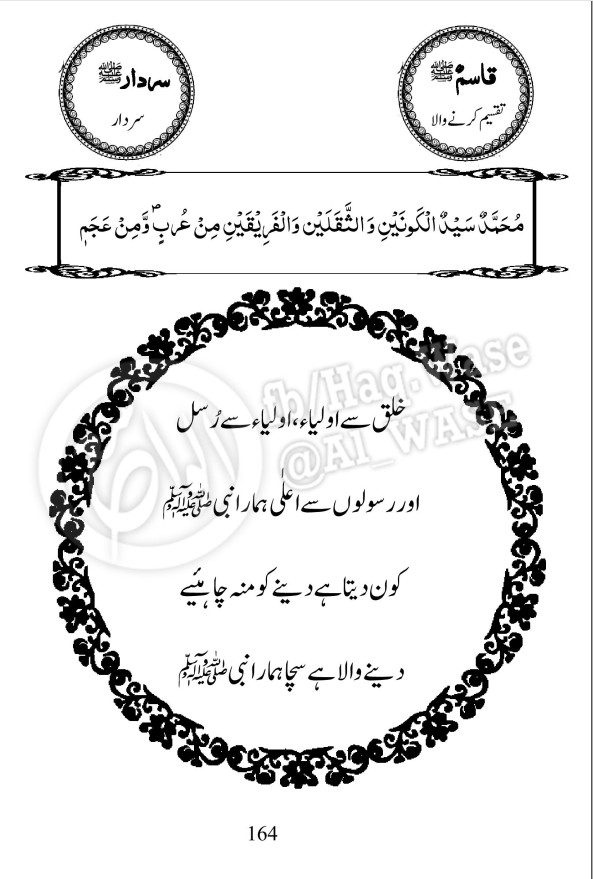 قاسم ﷺ
تقسیم کرنے والا
سردار ﷺ
سردار
مُحَمَّدٌ سَیِّدُ الْکَوْنَیْنِ وَالثَّقَلَیْنِ وَالْفَرِیْقَیْنِ مِنْ عُربٍ وَّمِنْ عَجَمٖ
fb/Haq.Wase
@Al_WASE
خلق سے اولیاء، اولیاء سے رُسل
اور رسولوں سے اعلٰی ہمارا نبی ﷺ
کون دیتا ہے دینے کو منہ چاہئیے
دینے والا ہے سچا ہمارا نبی ﷺ
164